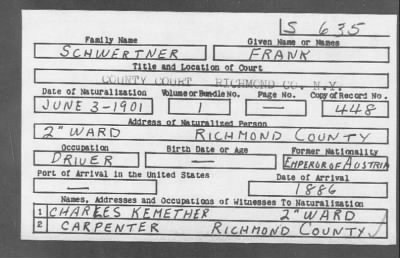 S 635
Family Name Given Name or Names
SCHWERTNER FRANK
Title and Location of Court
COUNTY COURT RICHMOND CO. N.Y.
Date of Naturalization Volume or Bundle No. Page No. Copy of Record No.
JUNE 3-1901 1 — 448
Address of Naturalized Person
2" WARD RICHMOND COUNTY
Occupation Birth Date or Age Former Nationality
DRIVER — EMPEROR OF AUSTRIA
Port of Arrival in the United States Date of Arrival
— 1886
Names, Addresses and Occupations of Witnesses To Naturalization
1 CHARLES KEMETHER 2" WARD
2 CARPENTER RICHMOND COUNTY